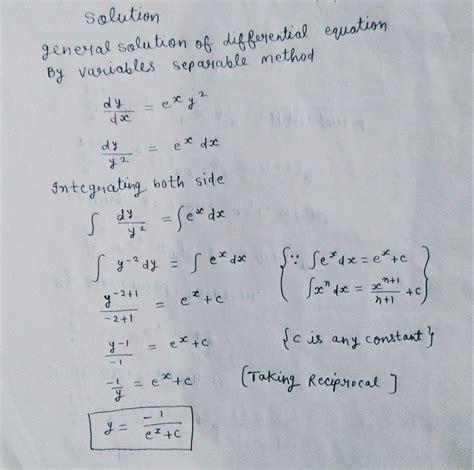 Solution
general solution of differential equation
By variables separable method
dy/dx = e^x y^2
dy/y^2 = e^x dx
Integrating both side
∫ dy/y^2 = ∫e^x dx
∫ y^-2 dy = ∫ e^x dx {∵ ∫e^x dx = e^x+c
y^-2+1/-2+1 = e^x+c ∫x^n dx = x^n+1/n+1 +c}
y-1/-1 = e^x+c {c is any constant}
-1/y = e^x+c [Taking Reciprocal]
y = -1/e^x+c